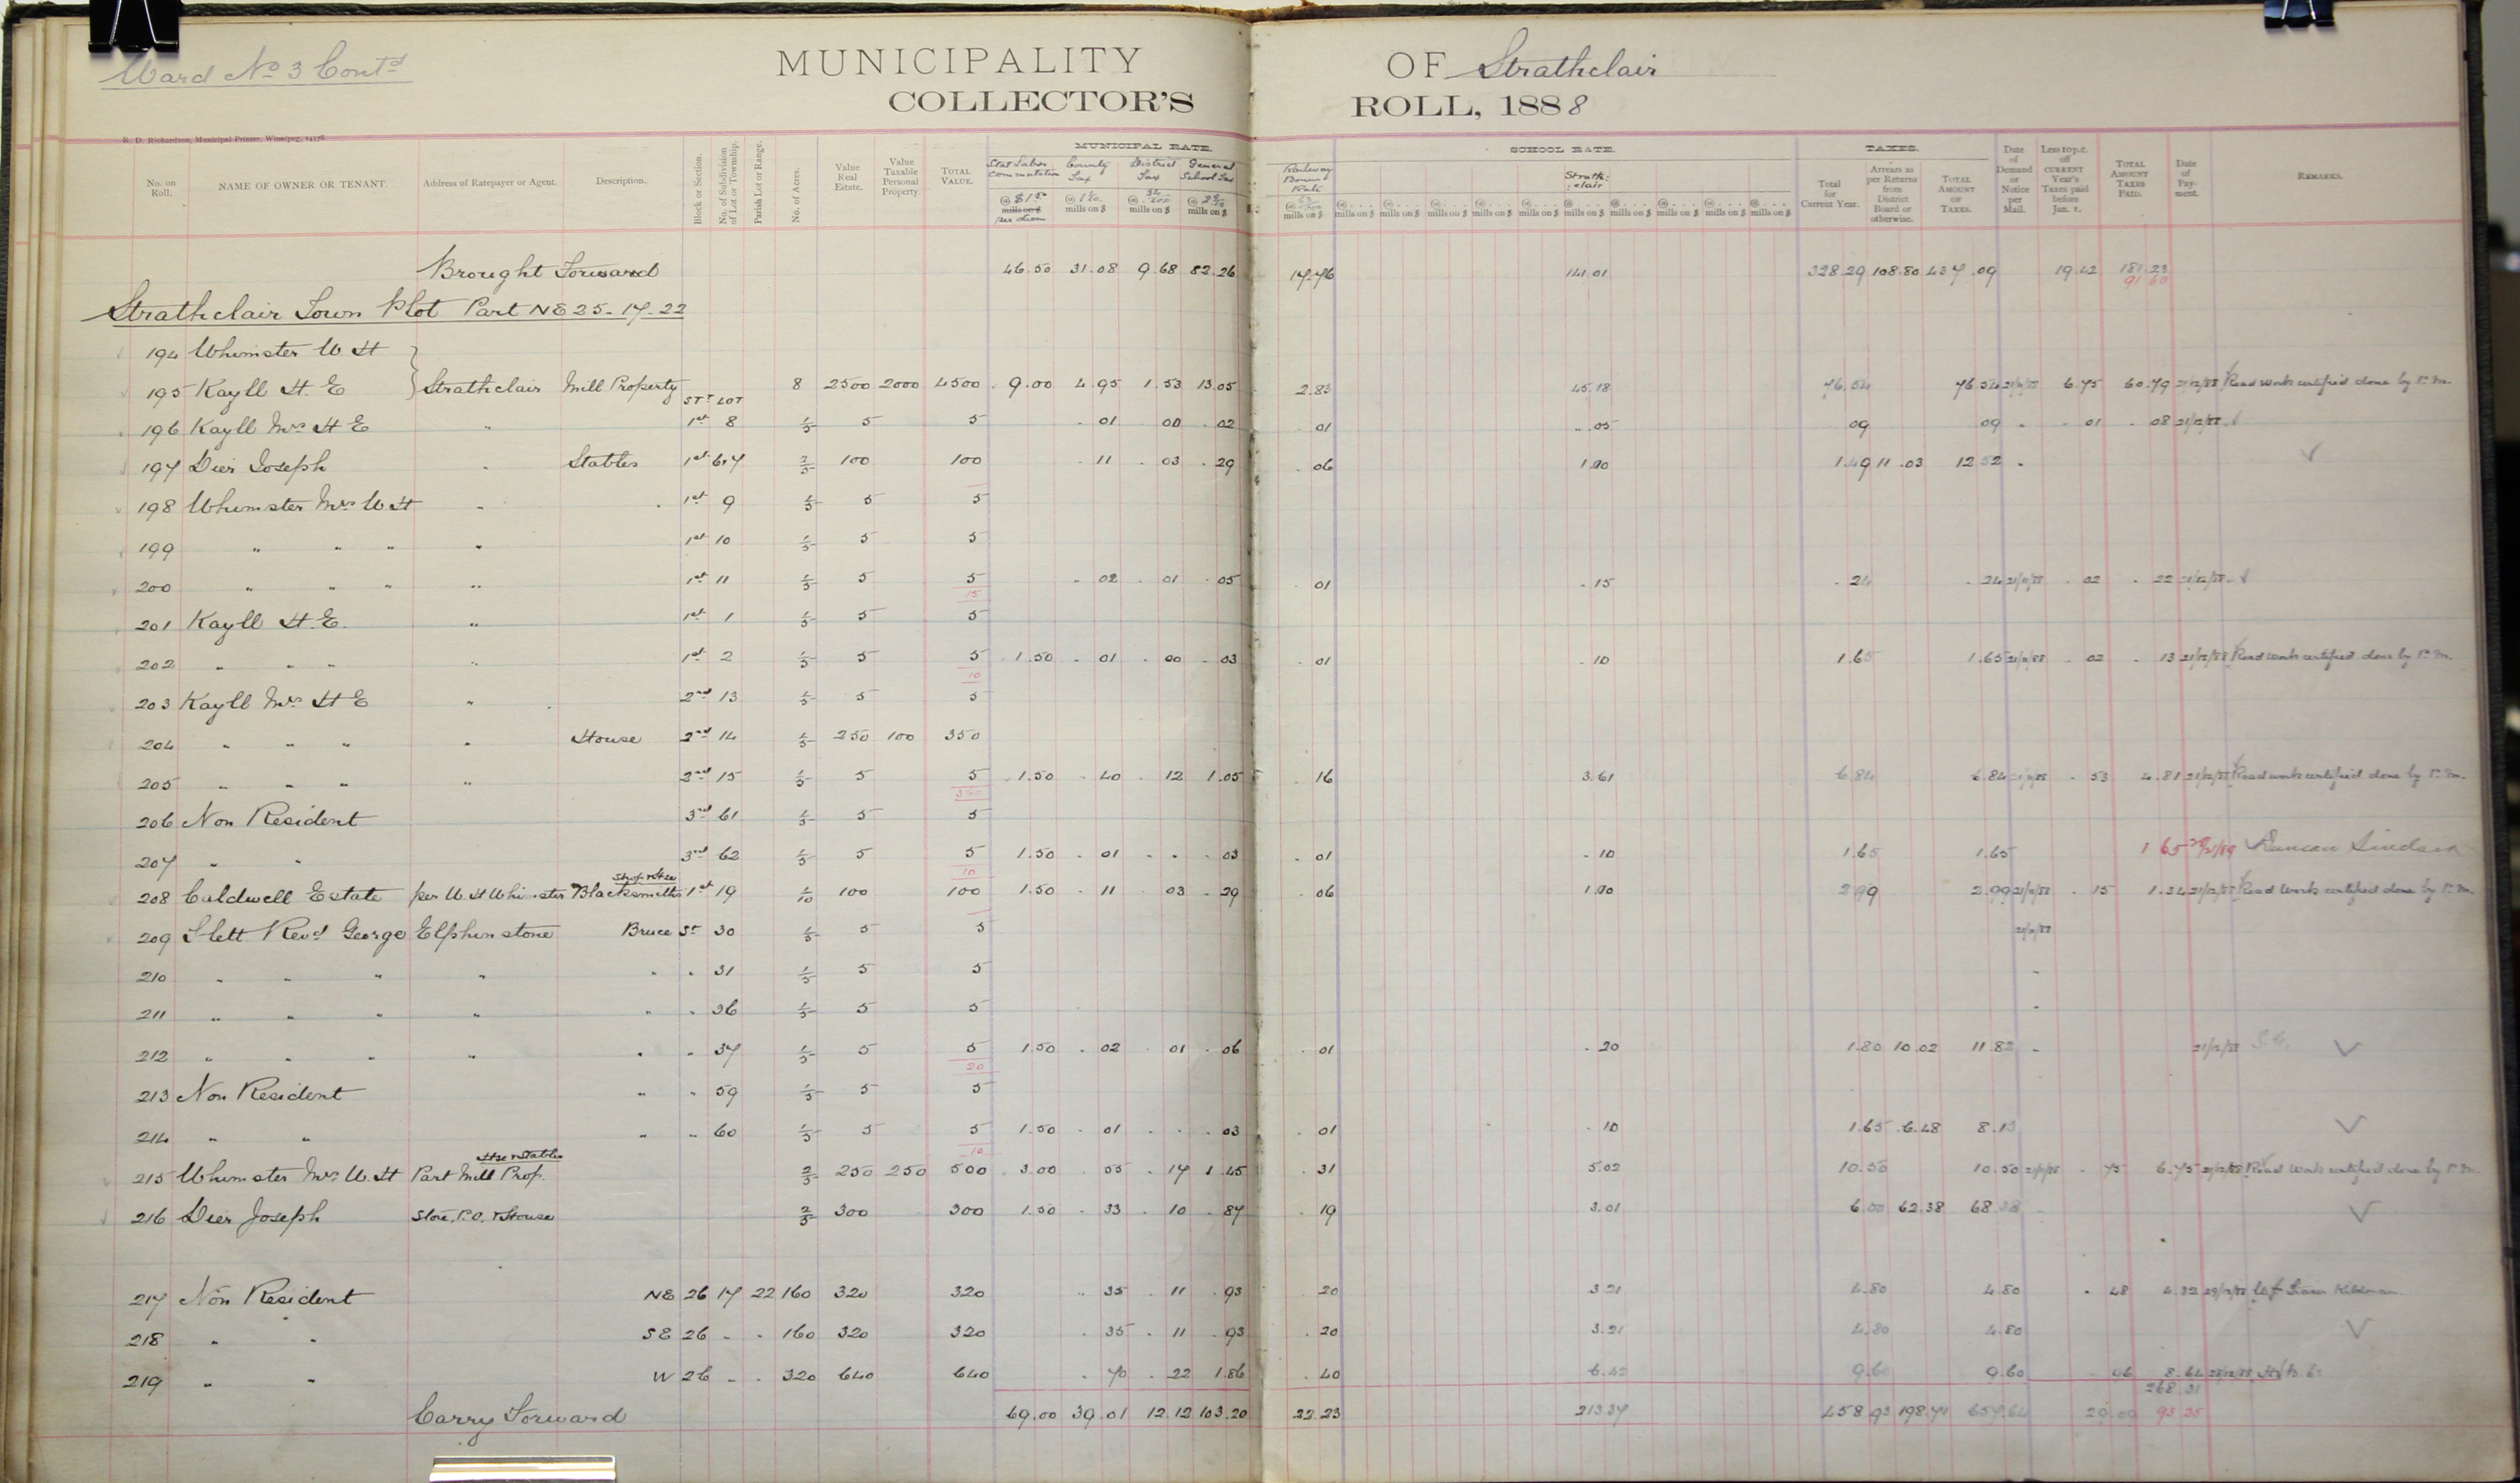 Ward No 3 Contd
MUNICIPALITY OF Strathclair
COLLECTOR'S ROLL, 1888
R. D. Richardson, Municipal Printer, Winnipeg,
MUNICIPAL RATE. SCHOOL RATE. TAXES.
No. on Roll. NAME OF OWNER OR TENANT. Address of Ratepayer or Agent. Description. Block or Section. No. of Subdivision of Lot or Township. Parish Lot or Range. No. of Acres. Value Real Estate. Value Taxable Personal Property TOTAL VALUE. Stat Labor commutation @ $1.50 mills on $ per diem County Tax mills on $ District Tax mills on $ General School Tax mills on $ Railway Bonus Rate mills on $ Strathclair mills on $ Total for Current Year. Arrears as per Returns from District Board or otherwise. TOTAL AMOUNT OF TAXES. Date of Demand or Notice per Mail. Less 10 p.c. off CURRENT Year's Taxes paid before Jan. 1. TOTAL AMOUNT TAXES PAID. Date of Payment. REMARKS.
Brought Forward 46.50 31.08 9.68 82.26 17.76 141.01 328.29 108.80 437.09 19.42 181.23
91.60
Strathclair Town Plot Part NE 25-17-22
194 Whimster W. H
195 Kayll H. E Strathclair Mill Property 8 2500 2000 4500 9.00 4.95 1.53 13.05 2.83 45.18 76.54 76.54 6.75 60.79 21/12/88 Road work certified done by P.M.
ST T LOT
196 Kayll Mrs H E " 1st 8 1/5 5 5 01 00 02 01 .05 09 09 01 08 21/12/88
197 Dier Joseph " Stables 1st 6+7 2/5 100 100 11 03 29 06 1.00 1.49 11.03 12.52
198 Whimster Mrs W H " 1st 9 1/5 5 5
199 " " " " 1st 10 1/5 5 5
200 " " " " 1st 11 1/5 5 5 02 01 05 01 .15 .24 .24 02 22 21/12/88
15
201 Kayll H. E. " 1st 1 1/5 5 5
202 " " " " 1st 2 1/5 5 5 1.50 01 00 03 01 .10 1.65 1.65 02 13 21/12/88 Road work certified done by P.M.
10
203 Kayll Mrs H E " 2nd 13 1/5 5 5
204 " " " " House 2nd 14 1/5 250 100 350
205 " " " " 2nd 15 1/5 5 5 1.50 40 12 1.05 16 3.61 6.84 6.84 53 4.81 21/12/88 Road work certified done by P.M.
360
206 Non Resident 3rd 61 1/5 5 5
207 " " 3rd 62 1/5 5 5 1.50 01 - 03 01 .10 1.65 1.65 1 65 Duncan Sinclair
10
Shop + Hse
208 Caldwell Estate per W. H Whimster Blacksmiths 1st 19 1/10 100 100 1.50 11 03 29 06 1.00 2.99 2.99 15 1.34 21/12/88 Road Work certified done by P.M.
209 Revd George Elphinstone Bruce St 30 1/5 5 5
210 " " " " " " 31 1/5 5 5
211 " " " " " " 36 1/5 5 5
212 " " " " " " 37 1/5 5 5 1.50 02 01 06 01 .20 1.80 10.02 11.82 21/12/88
20
213 Non Resident " " 59 1/5 5 5
214 " " " " 60 1/5 5 5 1.50 01 - 03 01 .10 1.65 6.48 8.13
10
Hse + Stables
215 Whimster Mrs W. H Part Mill Prop. 2/5 250 250 500 3.00 55 17 1.45 31 5.02 10.50 10.50 75 6.75 21/12/88 Road Work certified done by P.M.
216 Dier Joseph Store, P.O. + House 2/5 300 300 1.50 33 10 87 19 3.01 6.00 62.38 68.38
217 Non Resident NE 26 17 22 160 320 320 35 11 93 20 3.21 4.80 4.80 48 4.32
218 " " SE 26 " " 160 320 320 35 11 93 20 3.21 4.80 4.80
219 " " W 26 " " 320 640 640 70 22 1.86 40 6.42 9.60 9.60 96 8.64
268.31
Carry Forward 69.00 39.01 12.12 103.20 22.23 213.37 458.93 198.71 657.64 93.25